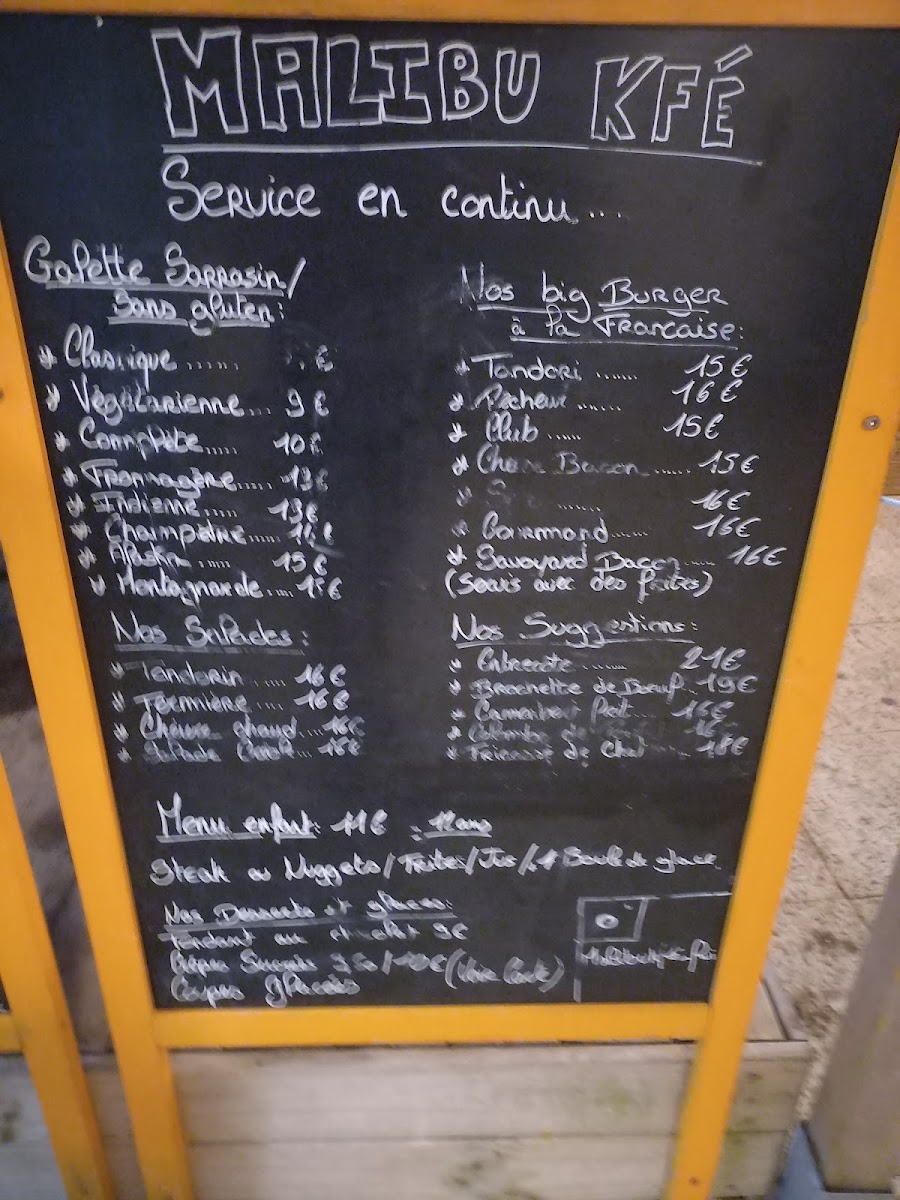 MALIBU KFÉ
Service en continu...
Galette Sarrasin/
Sans gluten:
Classique ...... €
Végétarienne... 9€
Complète..... 10€
Fromagère..... 13€
Indienne..... 13€
Champêtre.....
Alaska ..... 15€
Montagnarde....
Nos Salades:
Tandorin .... 16€
Fermière .... 16€
Chèvre chaud... 16€
Salade
Nos big Burger
à la Francaise:
Tandori ...... 15€
...... 16€
Club ..... 15€
Bacon ...... 15€
....... 16€
Gourmand...... 16€
Savoyard Bacon..... 16€
(Servis avec des frites)
Nos Suggestions:
Entrecôte ....... 21€
Brochette de Boeuf.. 19€
Camembert
de
de 18€
Menu enfant: 11€ - 12 ans
Steak ou Nuggets/Frites/Jus/1 Boule de glace
Nos Desserts et glaces:
au chocolat 9€
Crêpes Sucrées
Coupes glacées